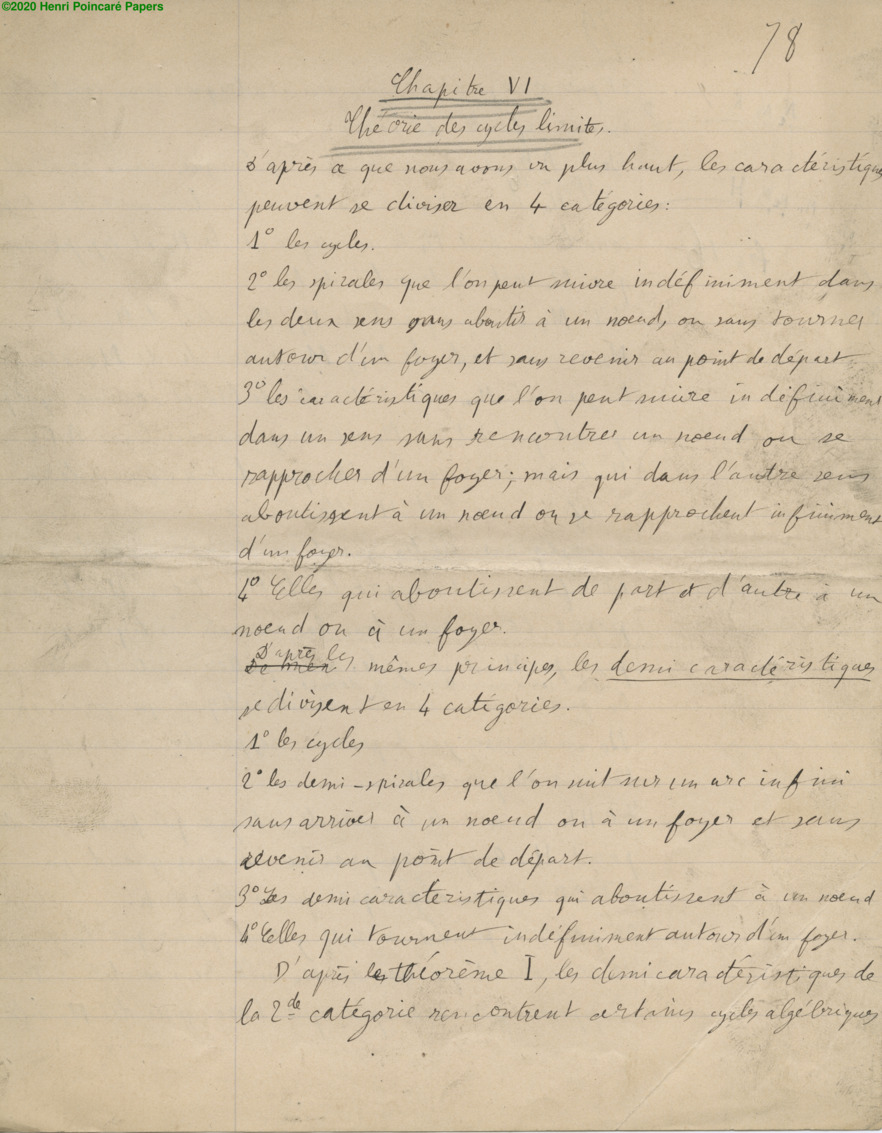 ©2020 Henri Poincaré Papers
78
Chapitre VI
Théorie des cycles limites.
D'après ce que nous avons vu plus haut, les caractéristiques
peuvent se diviser en 4 catégories:
1° les cycles.
2° les spirales que l'on peut suivre indéfiniment dans
les deux sens sans aboutir à un nœud, ou sans tourner
autour d'un foyer, et sans revenir au point de départ.
3° les caractéristiques que l'on peut suivre indéfiniment
dans un sens sans rencontrer un nœud ou se
rapprocher d'un foyer; mais qui dans l'autre sens
aboutissent à un nœud ou se rapprochent infiniment
d'un foyer.
4° Celles qui aboutissent de part et d'autre à un
nœud ou à un foyer.
D'après les mêmes principes, les demi caractéristiques
se divisent en 4 catégories.
1° les cycles
2° les demi-spirales que l'on suit sur un arc infini
sans arriver à un nœud ou à un foyer et sans
revenir au point de départ.
3° Les demi caractéristiques qui aboutissent à un nœud
4° Celles qui tournent indéfiniment autour d'un foyer.
D'après le théorème I, les demi caractéristiques de
la 2de catégorie rencontrent certains cycles algébriques